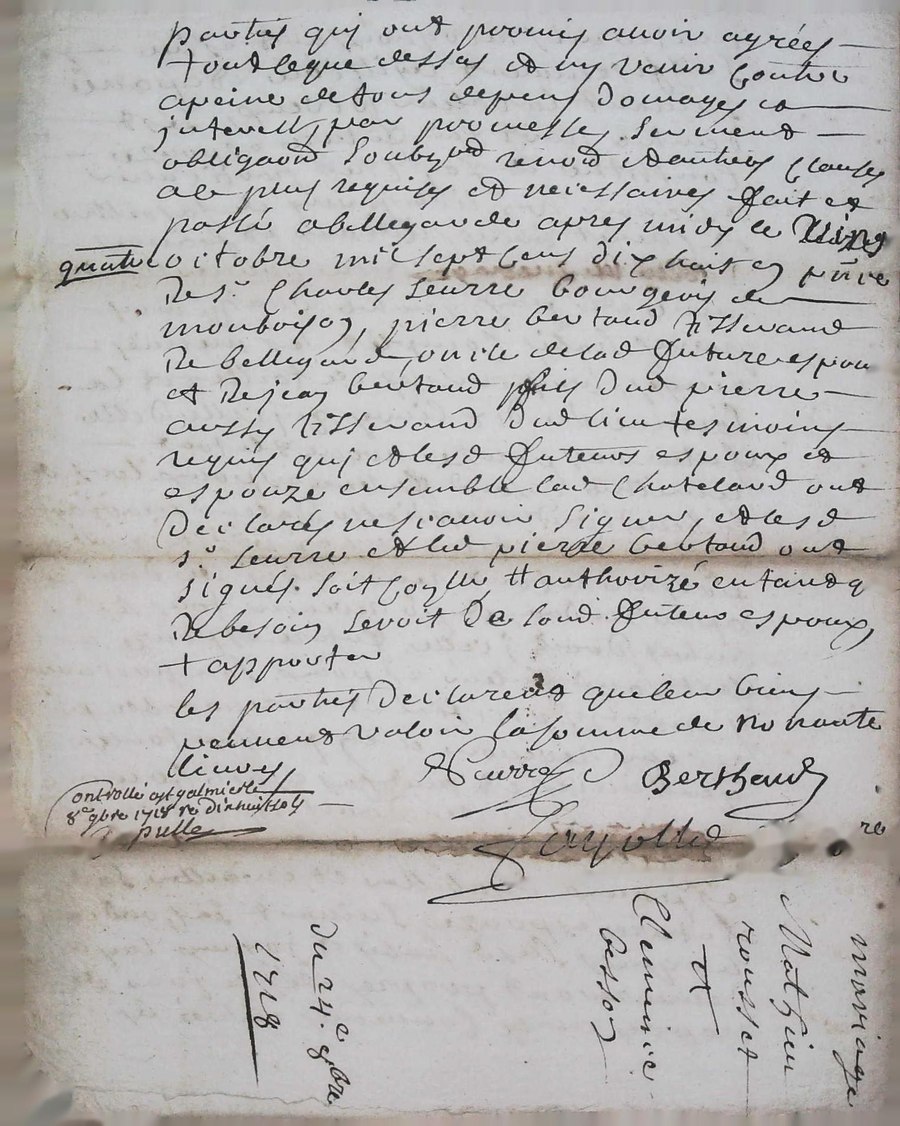 parties qui ont promis avoir agrées
tout ceque dessus et ny venir contre
apeine de tous depens domages et
interests par promesses serment
obligaõns soubz renõn et autres clauses
ale plus requises et necessaires fait et
passé abellegarde apres midy le vingt
quatre octobre mil sept cens dix huit en pñce
De sr. Charles Seurre bourgeois de
montboison, pierre bertaud tisserand
De bellegarde oncle delad future espou
et De jean bertaud fils dud pierre
aussy tisserand dud lieu tesmoins
requis qui et lesd futeurs espoux et
espouze ensemble lad Chatelard ont
Declarés ne scavoir signer, et lesd
sr. Seurre et led pierre bertaud ont
signés. soit authorizé entand q
De besoin seroit De soud futeur espoux,
+ apporter
les parties Declarent que leur biens
peuvent valoir la somme de nonante
livres
Seurre Berthaud
ontrollé a st galmier le
8e 9bre 1718 re dixhuit sols
pulle
mariage
Mathieu
rousset
et
Clemence
besson
du 24.e 8bre
1718